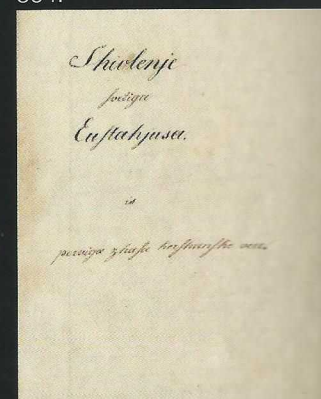 Shivlenje
ſvetiga
Euſtahjusa.
is
perviga zhaſa kerſhanſke vere.